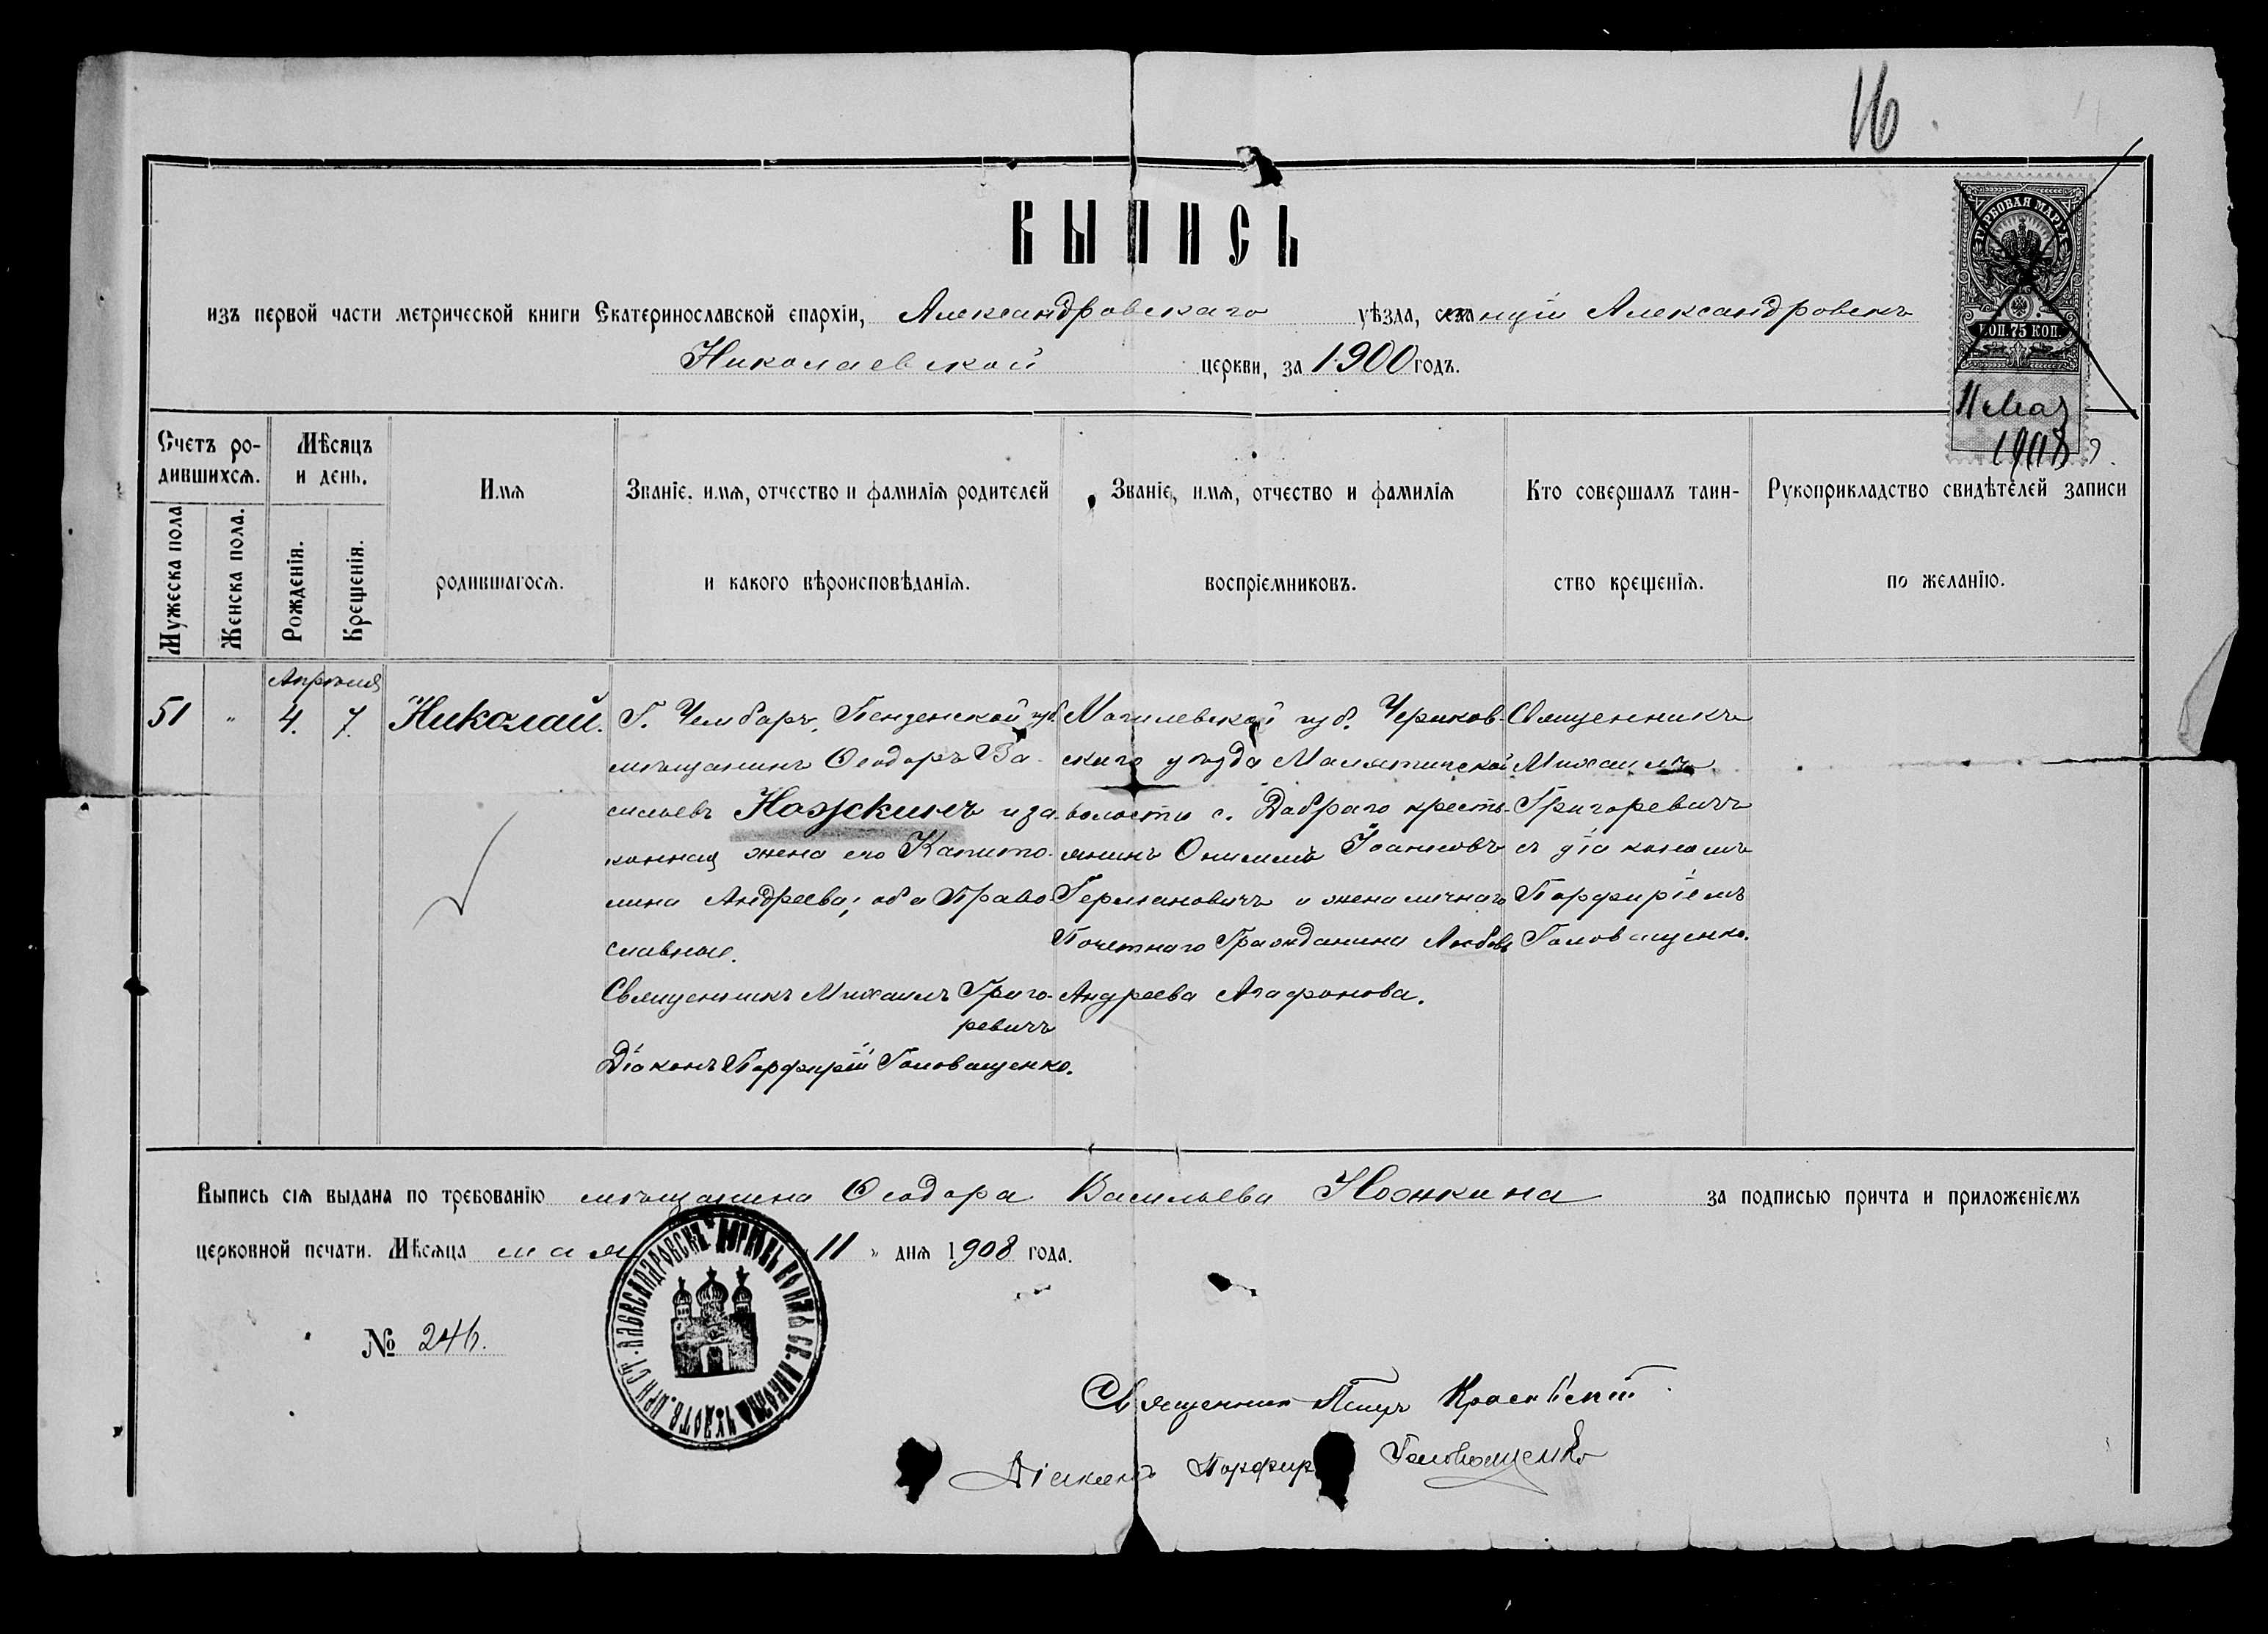 16
ВЫПИСЬ
ГЕРБОВАЯ МАРКА
КОП. 75 КОП.
11 мая
1908
изъ первой части метрической книги Екатеринославской епархіи, Александровскаго уѣзда, станціи Александровскъ
Николаевской церкви, за 1900 годъ.
Счетъ ро-
дившихся.
Мужеска пола
Женска пола.
Мѣсяцъ
и день.
Рожденія.
Крещенія.
Имя
родившагося.
Званіе, имя, отчество и фамилія родителей
и какого вѣроисповѣданія.
Званіе, имя, отчество и фамилія
воспріемниковъ.
Кто совершалъ таин-
ство крещенія.
Рукоприкладство свидѣтелей записи
по желанію.
Апрѣля
51 " 4. 7. Николай.
Г. Чембаръ, Пензенской губ.
мѣщанинъ Ѳеодоръ Ва-
сильевъ Ножкинъ и за-
конная жена его Капито-
лина Андреева; оба Право-
славные.
Священникъ Михаилъ Григо-
ревичъ
Діаконъ Порфирій Головащенко.
Могилевской губ. Чериков-
скаго уѣзда Малятической
волости с. Добраго кресть-
янинъ Онисимъ Іоанновъ
Германовичъ и жена личнаго
Почетнаго Гражданина Любовь
Андреева Агафонова.
Священникъ
Михаилъ
Григоревичъ
съ діакономъ
Порфиріемъ
Головащенко.
Выпись сія выдана по требованію мѣщанина Ѳеодора Васильева Ножкина за подписью причта и приложеніемъ
церковной печати. Мѣсяца мая 11 " дня 1908 года.
ЦЕРКОВЬ ВО ИМЯ СВ. НИКОЛАЯ ЧУДОТВ. ПРИ СТ. АЛЕКСАНДРОВСКЪ
№ 246.
Священникъ Петръ
Діаконъ Порфир Головащенко